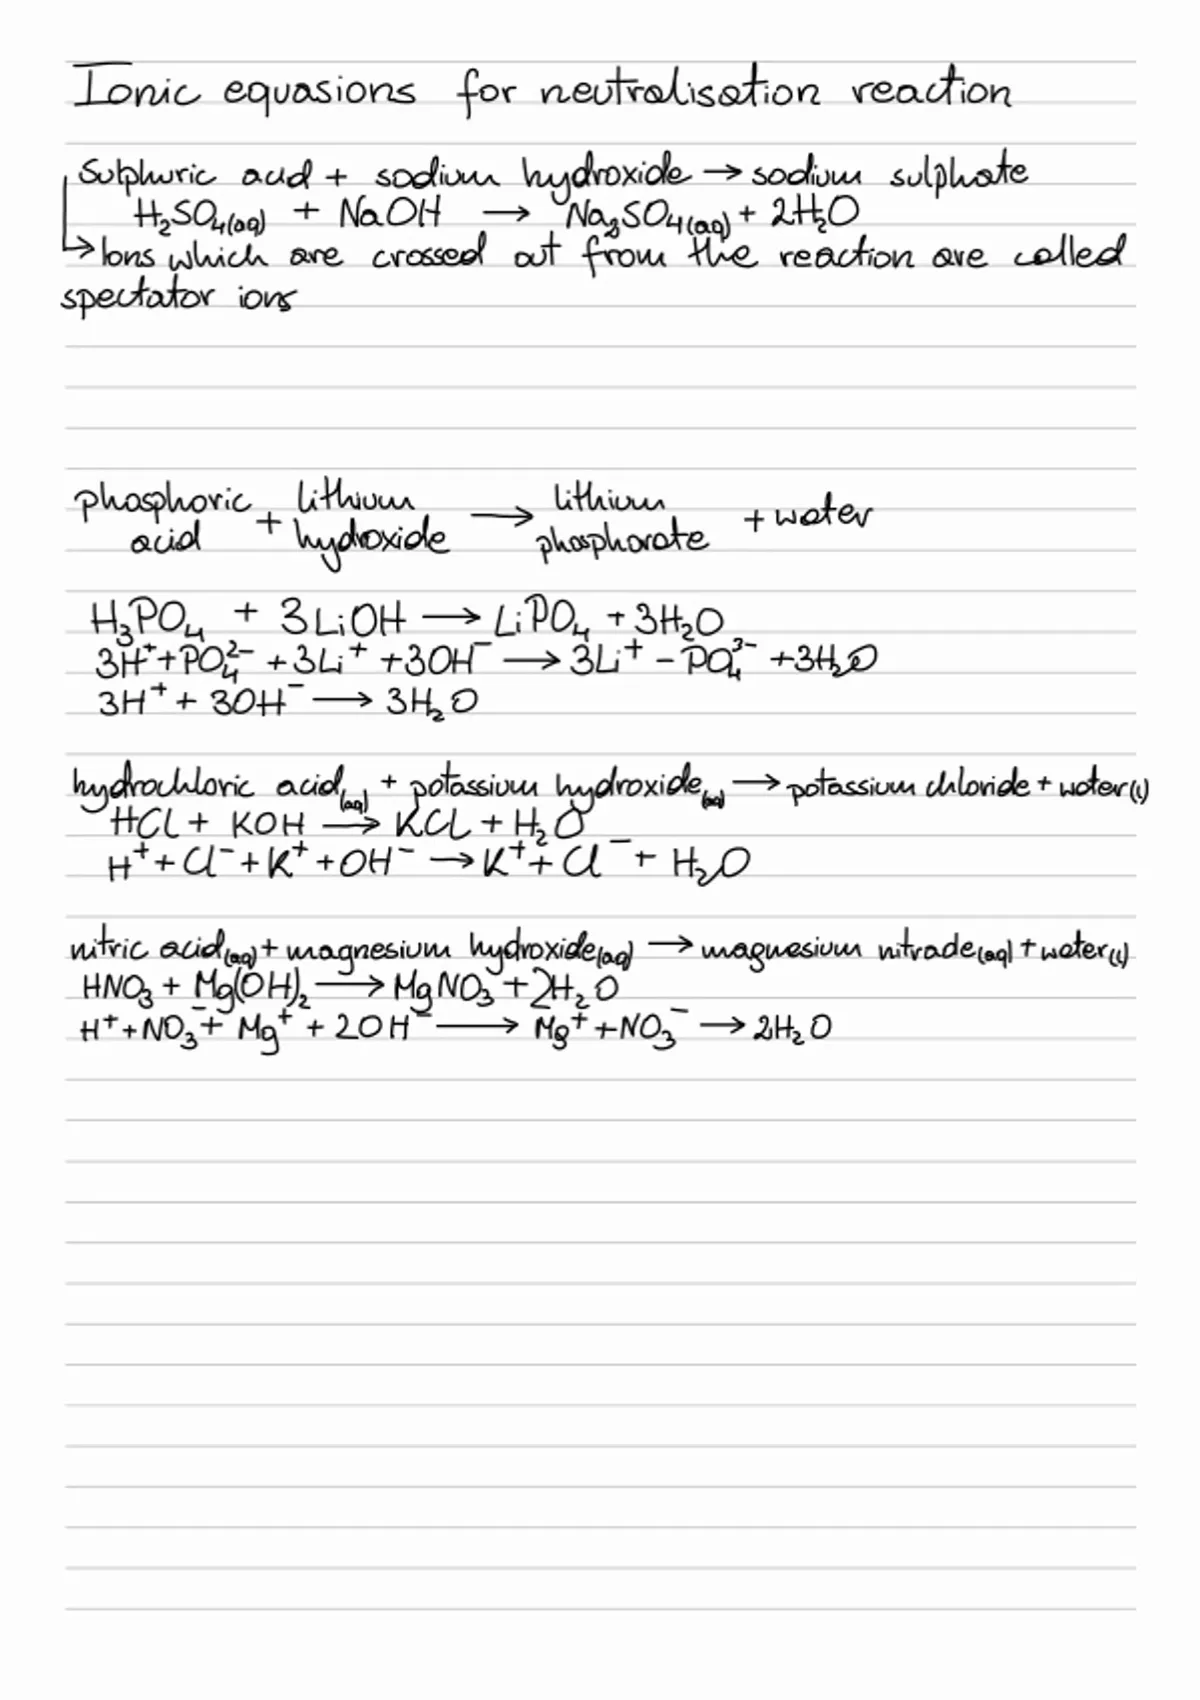 Ionic equasions for neutralisation reaction
Sulphuric acid + sodium hydroxide → sodium sulphate
H₂SO₄(aq) + NaOH → Na₂SO₄(aq) + 2H₂O
↳ Ions which are crossed out from the reaction are called
spectator ions
phosphoric acid + lithium hydroxide → lithium phosphorate + water
H₃PO₄ + 3LiOH → LiPO₄ + 3H₂O
3H⁺ + PO₄²⁻ + 3Li⁺ + 3OH⁻ → 3Li⁺ - PO₄³⁻ + 3H₂O
3H⁺ + 3OH⁻ → 3H₂O
hydrochloric acid(aq) + potassium hydroxide(aq) → potassium chloride + water(l)
HCl + KOH → KCL + H₂O
H⁺ + Cl⁻ + K⁺ + OH⁻ → K⁺ + Cl⁻ + H₂O
nitric acid(aq) + magnesium hydroxide(aq) → magnesium nitrade(aq) + water(l)
HNO₃ + Mg(OH)₂ → MgNO₃ + 2H₂O
H⁺ + NO₃⁻ + Mg⁺ + 2OH⁻ → Mg⁺ + NO₃⁻ → 2H₂O